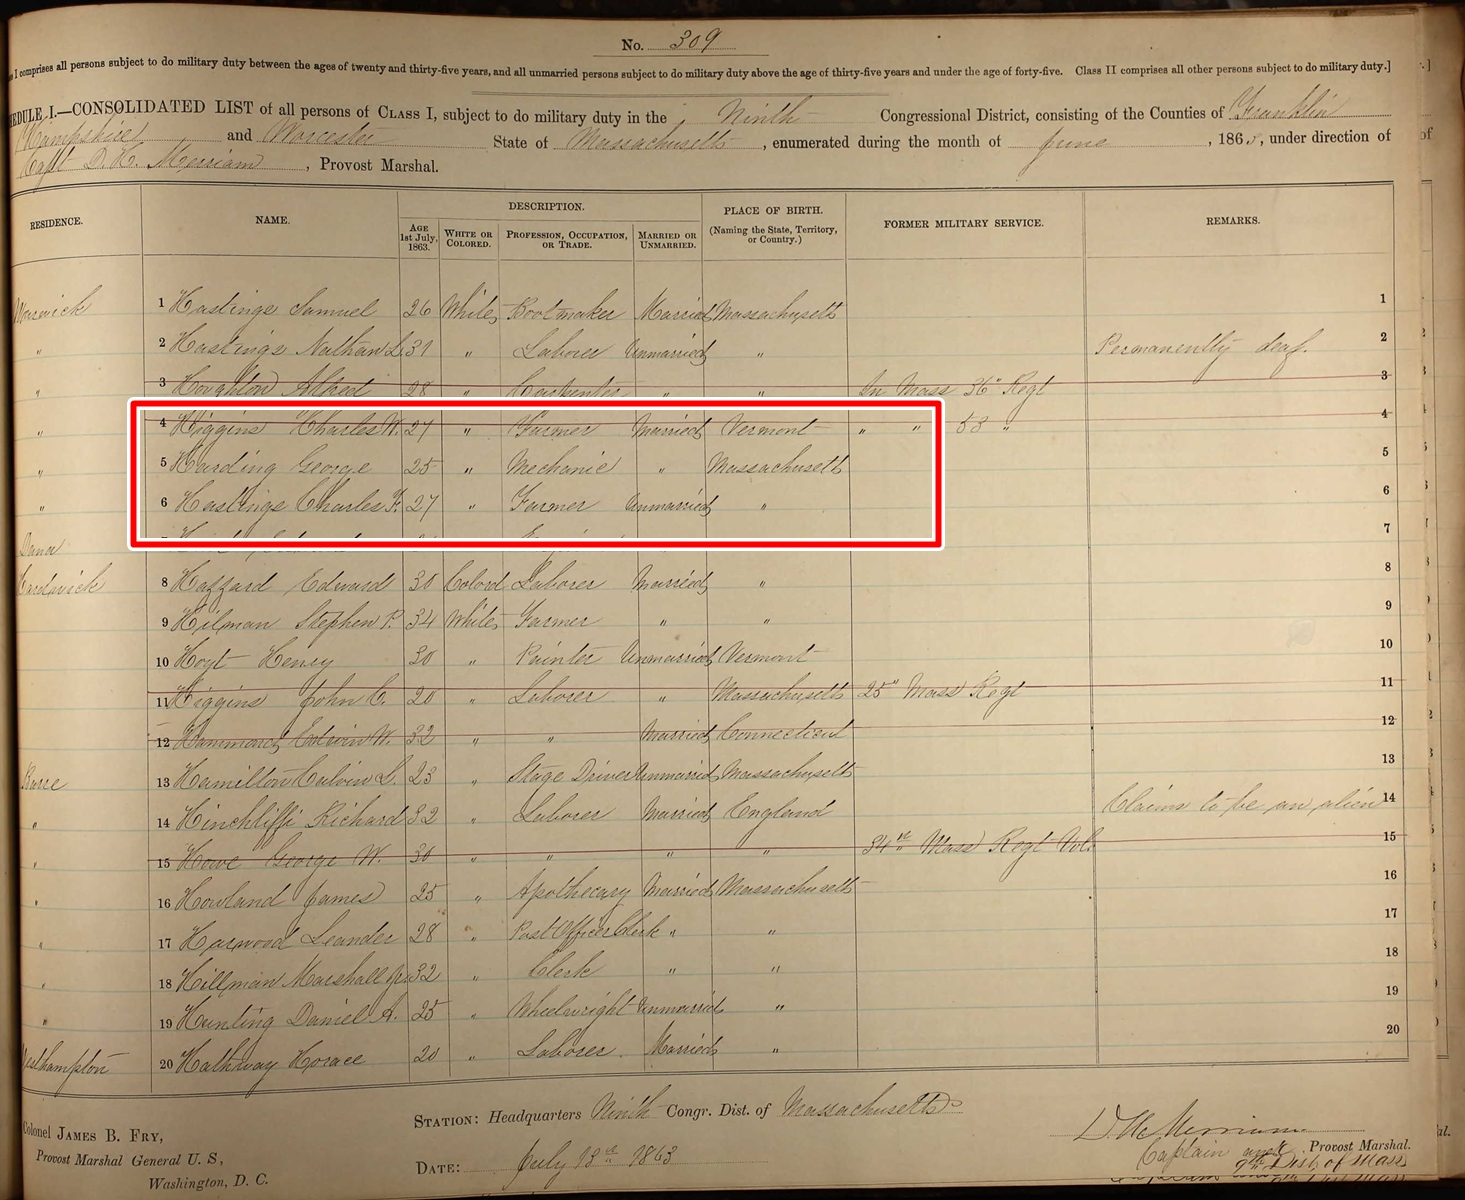 No. 309
s I comprises all persons subject to do military duty between the ages of twenty and thirty-five years, and all unmarried persons subject to do military duty above the age of thirty-five years and under the age of forty-five. Class II comprises all other persons subject to do military duty.]
EDULE I.—CONSOLIDATED LIST of all persons of CLASS I, subject to do military duty in the Ninth Congressional District, consisting of the Counties of Franklin
Hampshire and Worcester State of Massachusetts, enumerated during the month of June, 186 , under direction of
Capt D. H. Merriam, Provost Marshal.
RESIDENCE. NAME. DESCRIPTION. PLACE OF BIRTH. FORMER MILITARY SERVICE. REMARKS.
AGE 1st July, 1863. WHITE OR COLORED. PROFESSION, OCCUPATION, OR TRADE. MARRIED OR UNMARRIED. (Naming the State, Territory, or Country.)
Warwick 1 Hastings Samuel 26 White Bootmaker Married Massachusetts 1
" 2 Hastings Nathan L. 31 " Laborer Unmarried " Permanently deaf. 2
" 3 Houghton Alfred 28 " Carpenter " " In Mass 36" Regt 3
" 4 Higgins Charles W. 27 " Farmer Married Vermont " " 53 " 4
" 5 Harding George 25 " Mechanic " Massachusetts 5
" 6 Hastings Charles F. 27 " Farmer Unmarried " 6
Dana 7
Hardwick 8 Hazzard Edward 30 Colord Laborer Married " 8
9 Hilman Stephen P. 34 White Farmer " " 9
10 Hoyt Henry 30 " Painter Unmarried Vermont 10
11 Higgins John C. 20 " Laborer " Massachusetts 25" Mass Regt 11
12 Hammond Edwin W. 32 " " Married Connecticut 12
Barre 13 Hamilton Calvin L. 23 " Stage Driver Unmarried Massachusetts 13
" 14 Hinchliffe Richard 32 " Laborer Married England Claims to be an alien 14
" 15 Howe George W. 30 " " " " 34th Mass Regt Vol. 15
" 16 Howland James 25 " Apothecary Married Massachusetts 16
" 17 Harwood Leander 28 " Post Officer Clerk " " 17
" 18 Hillman Marshall Jr. 32 " Clerk " " 18
" 19 Hunting Daniel A. 25 " Wheelwright Unmarried " 19
esthampton 20 Hathway Horace 20 " Laborer. Married " 20
STATION: Headquarters Ninth Congr. Dist. of Massachusetts
Colonel JAMES B. FRY,
Provost Marshal General U S,
Washington, D. C.
DATE: July 13th 1863
D. H. Merriam
Captain and Provost Marshal.
9th Dist of Mass